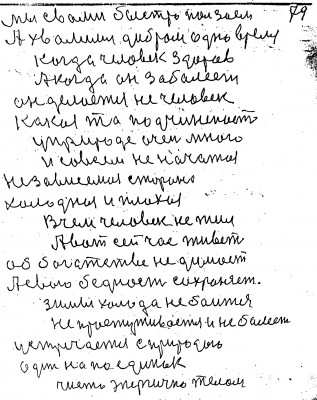 мы с вами быстро ползаем 79
А хвалили добром одно время
Когда человек здоров
А когда он заболеет
он делается не человек
Какая та подчиненость
у природе очен много
и совсем не начатая
независемая сторона
холодная и плохая
В чем человек не жил
А вот сейчас живет
об богатстве не думает
А евою бедност сохраняет.
зимы холода не боится
не простуживается и не балеет
встречается с природою
один на поединык
чисто энергично телом